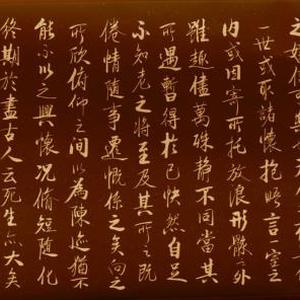 一世或取諸懷抱悟言一室之
內或因寄所托放浪形骸之外
雖趣萬殊靜不同當其
所遇暫得於己快然自足
不知老之將至及其所之既
倦情隨事遷慨係之矣向之
所欣俯仰之間以為陳迹猶不
能不以之興懷況脩短隨化
終期於盡古人云死生亦大矣